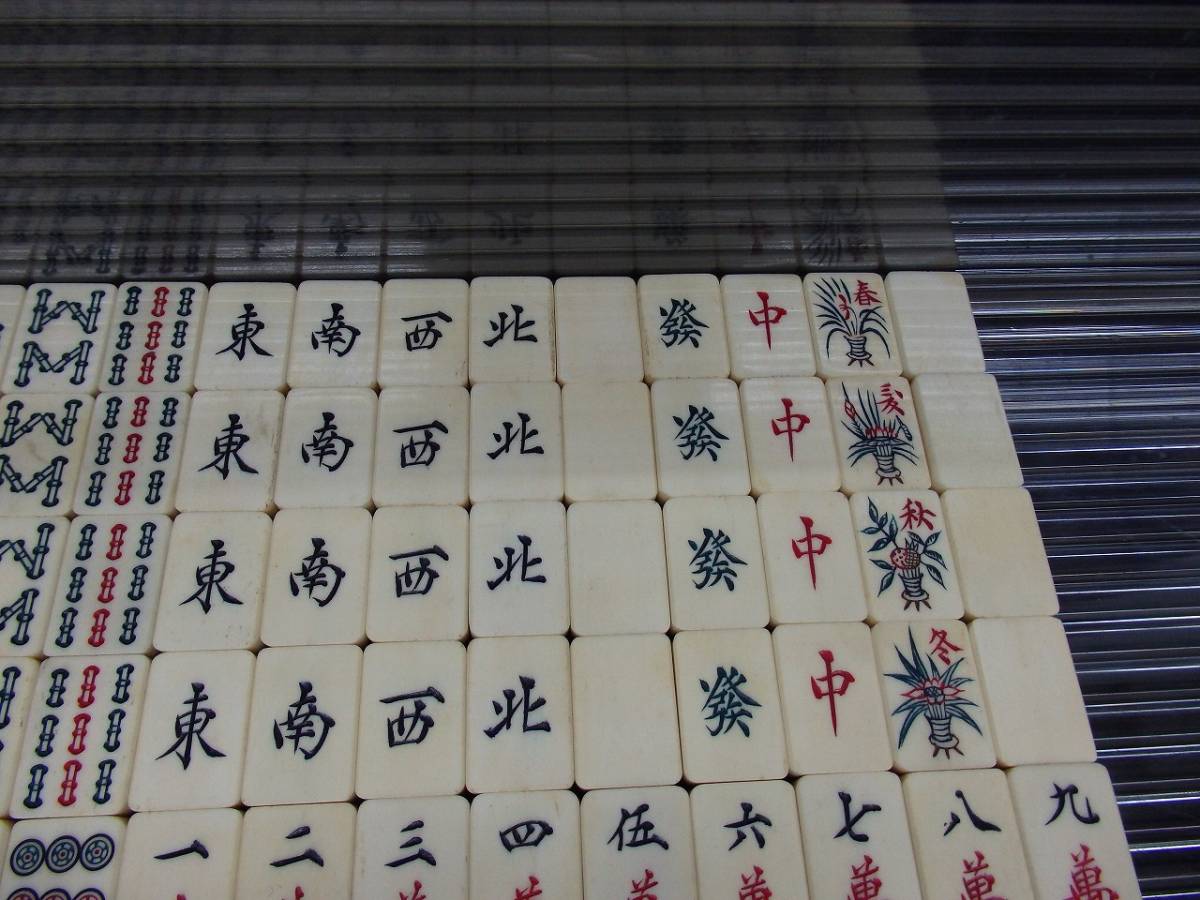 東 南 西 北 發 中 春
東 南 西 北 發 中 夏
東 南 西 北 發 中 秋
東 南 西 北 發 中 冬
一 二 三 四 伍 六 七 八 九
萬 萬 萬 萬 萬 萬 萬